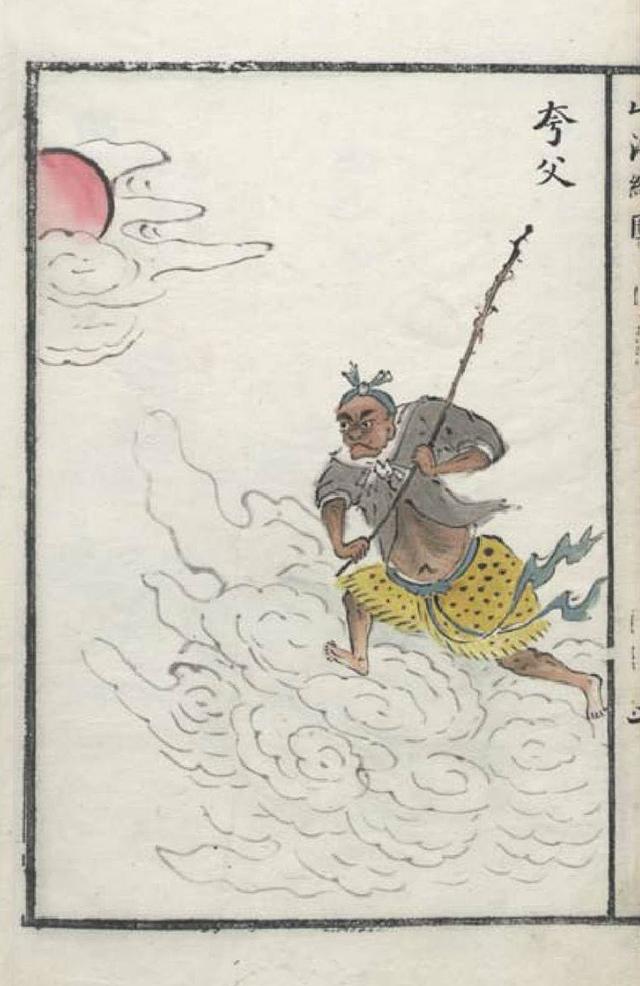 夸父
山海經圖